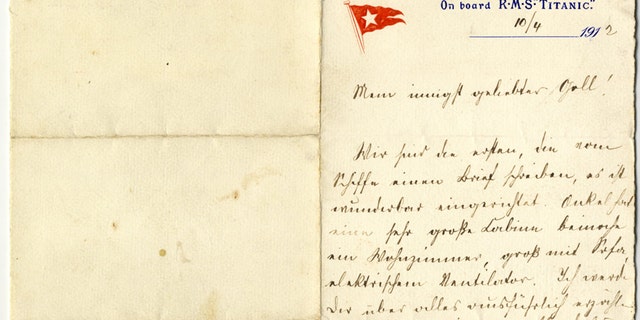 On board R·M·S· "TITANIC."
10/4 1912
Mein innigst geliebter Goll!
Wir sind die ersten, die vom
Schiffe einen Brief schreiben, es ist
wunderbar eingerichtet. Onkel hat
eine sehr große Cabine beinahe
ein Wohnzimmer, groß mit Sofa,
elektrischem Ventilator. Ich werde
Dir über alles ausführlich